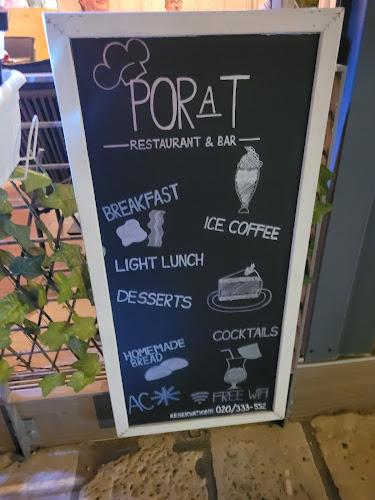 PORAT
RESTAURANT & BAR
BREAKFAST
ICE COFFEE
LIGHT LUNCH
DESSERTS
COCKTAILS
HOMEMADE
BREAD
AC
FREE WIFI
RESERVATIONS: 020/333-532